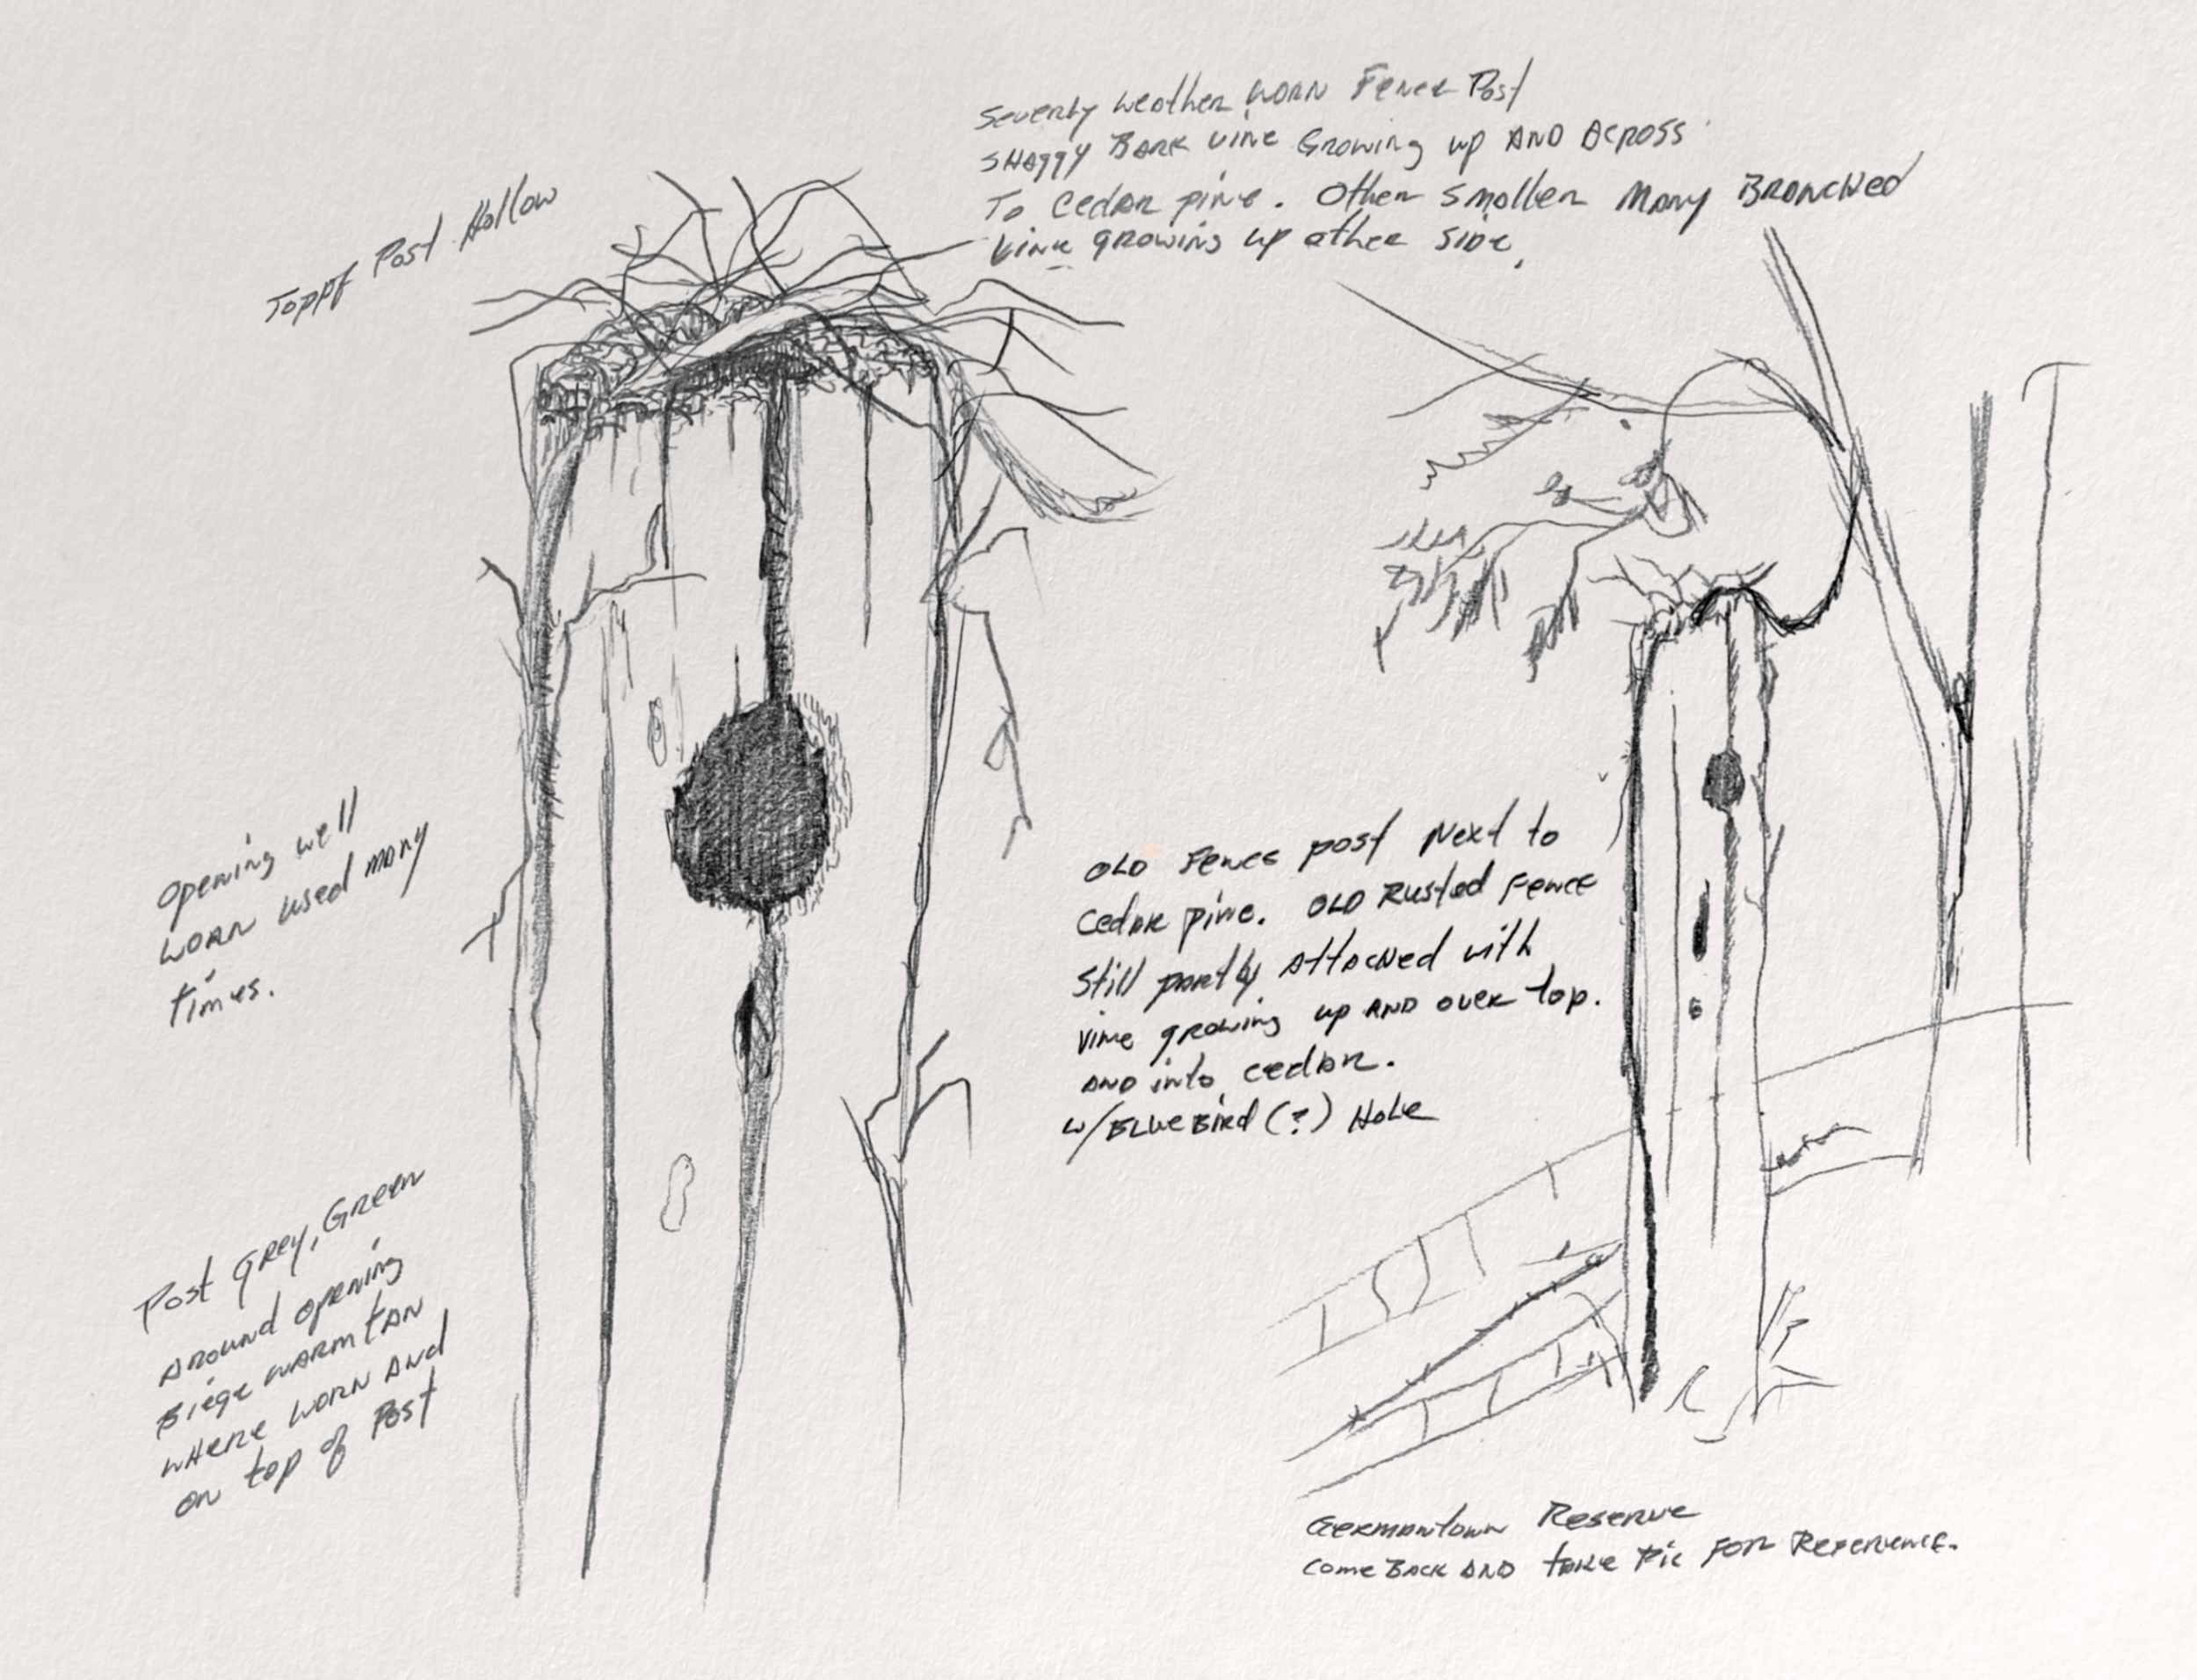 Severly weather worn Fence Post
SHAggy Bark vine Growing up AND Across
To Cedar pine. Other smaller Many Branched
vine growing up other side.
Top of Post Hollow
Opening well
worn used many
times.
OLD Fence post Next to
Cedar pine. OLD Rusted Fence
still partly Attached with
vine growing up AND over top.
AND into cedar.
w/BLueBird (?) Hole
Post Grey, Green
Around opening
Biege warm tan
wHere worn And
on top of Post
Germantown Reserve
Come Back AND take Pic For Reference.